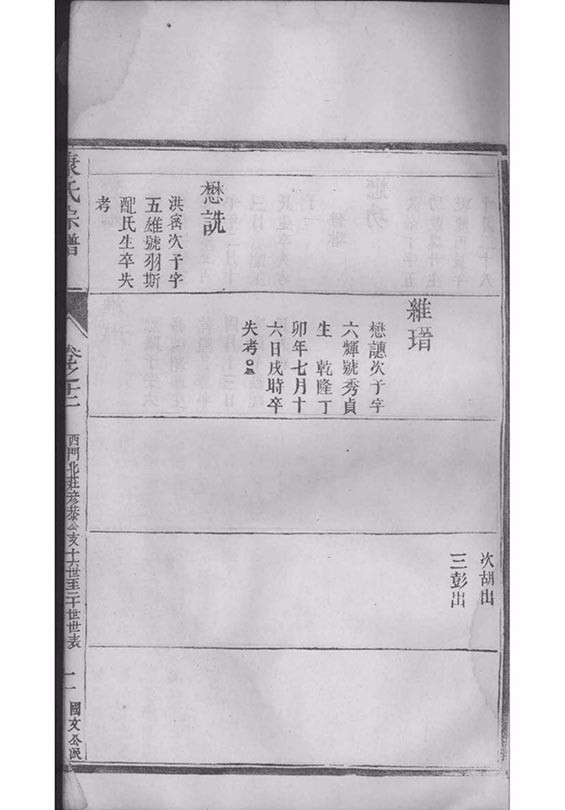 次胡出
三彭出
維瑨
懋譓次子字
六輝號秀貞
生 乾隆丁
卯年七月十
六日戌時卒
失考
懋詵
洪密次子字
五雄號羽斯
配氏生卒失
考
氏宗譜
卷之
西門北莊彥恭公支十六世至二十世世表
二
國文公派